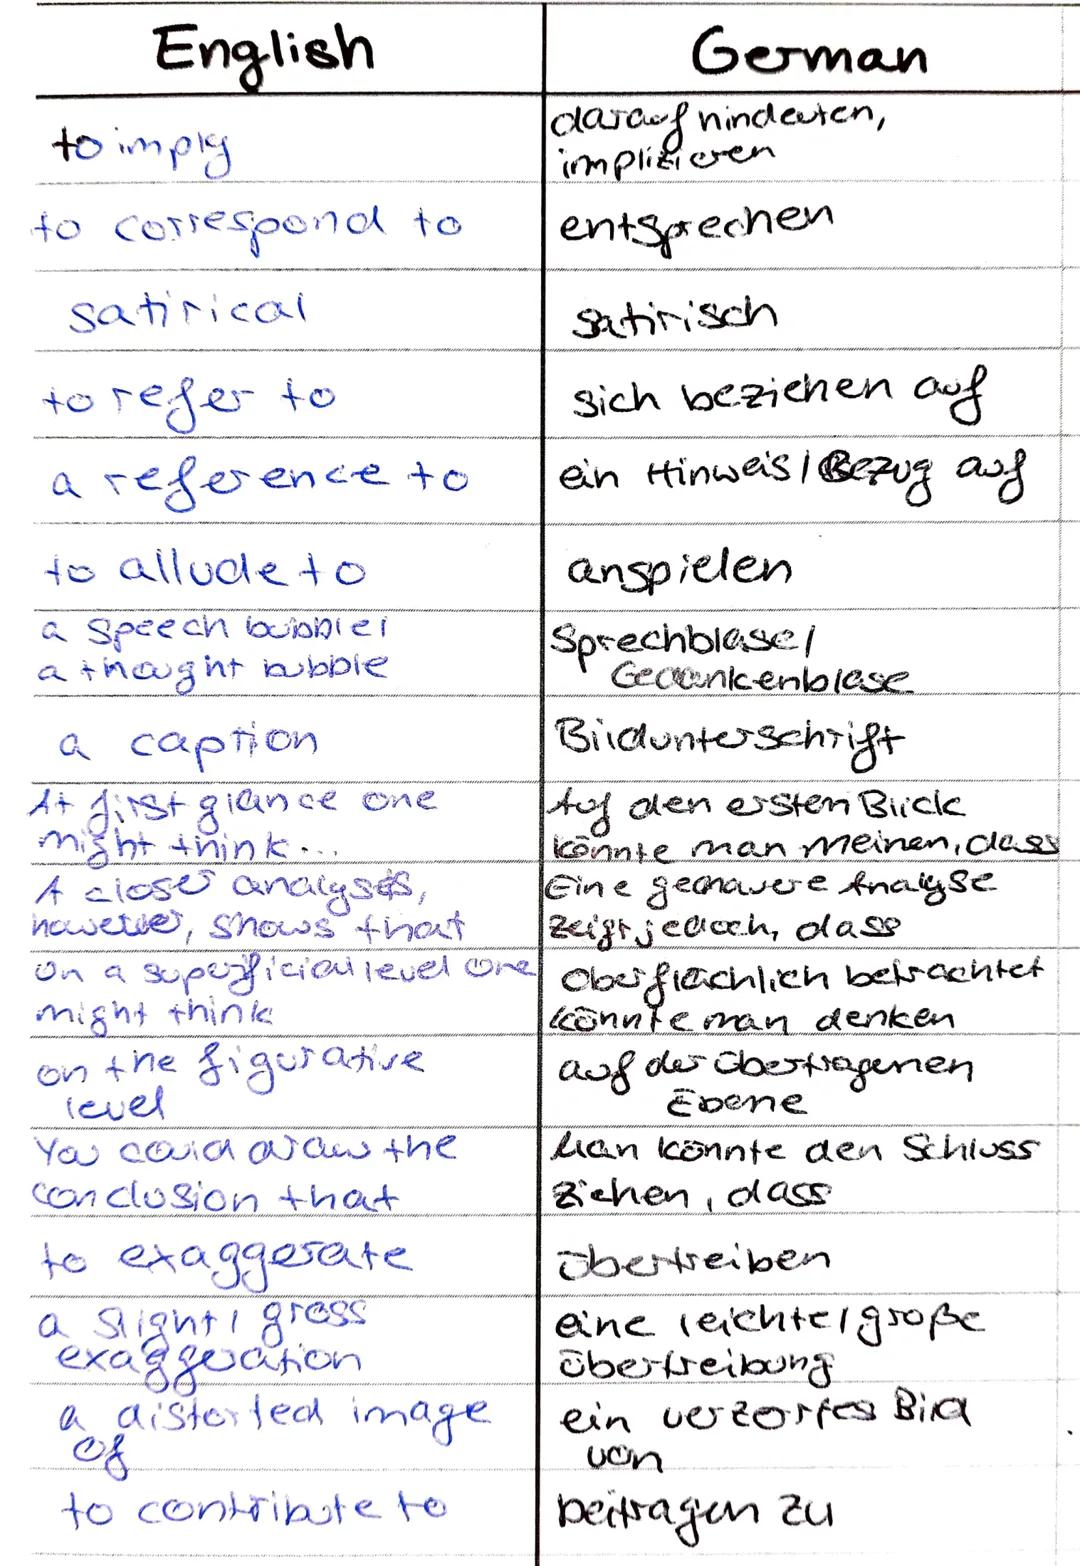 English German
to imply
darauf hindeuten,
implizieren
to correspond to
entsprechen
satirical
satirisch
to refer to
sich beziehen auf
a reference to
ein Hinweis/Bezug auf
to allude to
anspielen
a speech bubble/
a thought bubble
Sprechblase/
Gedankenblase
a caption
Bildunterschrift
At first glance one
might think...
Auf den ersten Blick
könnte man meinen, dass
A closer analyses,
however, shows that
Eine genauere Analyse
zeigt jedoch, dass
On a superficial level one
might think
Oberflächlich betrachtet
könnte man denken
on the figurative
level
auf der übertragenen
Ebene
You could draw the
conclusion that
Man könnte den Schluss
ziehen, dass
to exaggerate
übertreiben
a slight/gross
exaggeration
eine leichte/große
übertreibung
a distorted image
of
ein verzerrtes Bild
von
to contribute to
beitragen zu